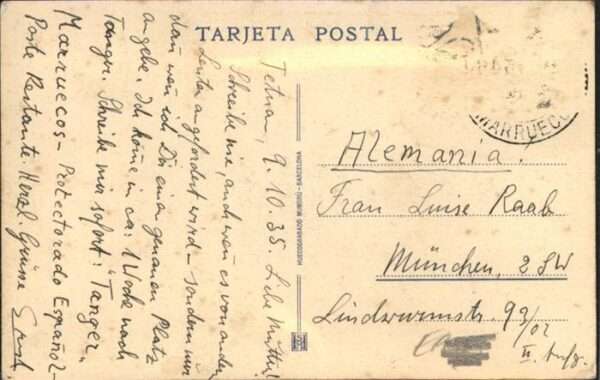 TARJETA POSTAL
MARRUECOS
Tetuan, 9.10.35. Liebe Mutter!
Schreibe mir, auch wen es von anderen
Leuten angefordert wird – sondern nur
dan wen ich Dir einen genauen Platz
angebe. Ich kome in ca. 1 Woche nach
Tanger. Schreibe mir sofort: "Tanger,
Marruecos – Protectorado Español –
Poste Restante. Herzl. Grüsse Ernst.
HUECOGRABADO MUMBRÚ - BARCELONA
Alemania.
Frau Luise Raab
München, 2 SW
Lindwurmstr. 93/02
II. Aufg.